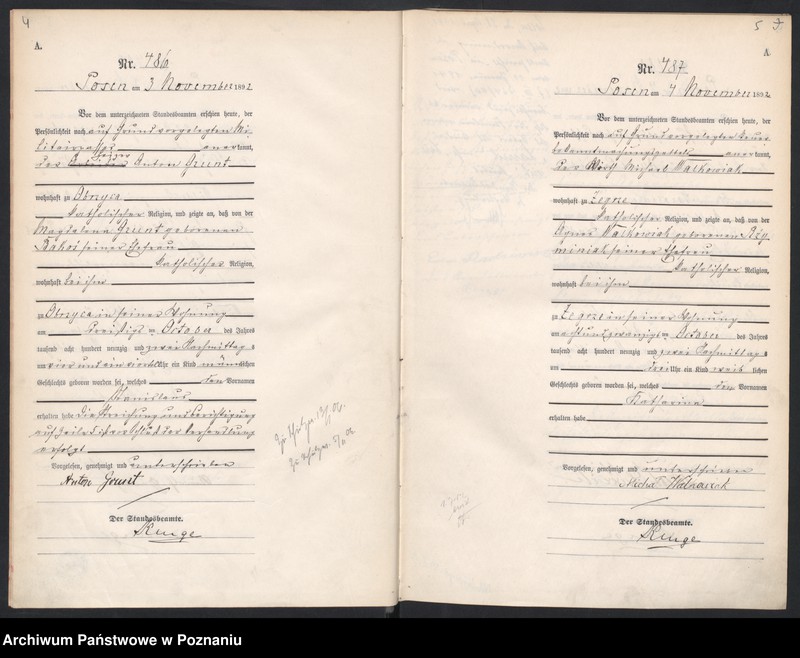 4
A.
Nr. 786
Posen am 3 November 1892
Vor dem unterzeichneten Standesbeamten erschien heute, der
Persönlichkeit nach auf Grund vorgelegten Mi-
litairpasses anerkannt,
der Anton Grunt
wohnhaft zu Obrzyca
katholischer Religion, und zeigte an, daß von der
Magdalena Grunt geborenen
seiner Ehefrau
katholischer Religion,
wohnhaft bei ihm
zu Obrzyca in seiner Wohnung
am dreißigten October des Jahres
tausend acht hundert neunzig und zwei Nachmittags
um vier und ein viertel Uhr ein Kind männlichen
Geschlechts geboren worden sei, welches den Vornamen
Stanislaus
erhalten habe Die Streichung und Berichtigung
auf Zeile 5 ist vor Schluß der Verhandlung
erfolgt
Vorgelesen, genehmigt und unterschrieben
Anton Grunt
Der Standesbeamte.
5
A.
Nr. 737
Posen am 4 November 1892
Vor dem unterzeichneten Standesbeamten erschien heute, der
Persönlichkeit nach auf Grund vorgelegten
bekanntmachungszettels anerkannt,
der Wirth Michael Walkowiak
wohnhaft zu Zegrze
katholischer Religion, und zeigte an, daß von der
Agnes Walkowiak geborenen
seiner Ehefrau
katholischer Religion,
wohnhaft bei ihm
zu Zegrze in seiner Wohnung
am achtundzwanzigten October des Jahres
tausend acht hundert neunzig und zwei Nachmittags
um drei Uhr ein Kind weiblichen
Geschlechts geboren worden sei, welches den Vornamen
Katharina
erhalten habe
Vorgelesen, genehmigt und unterschrieben
Der Standesbeamte.
Archiwum Państwowe w Poznaniu